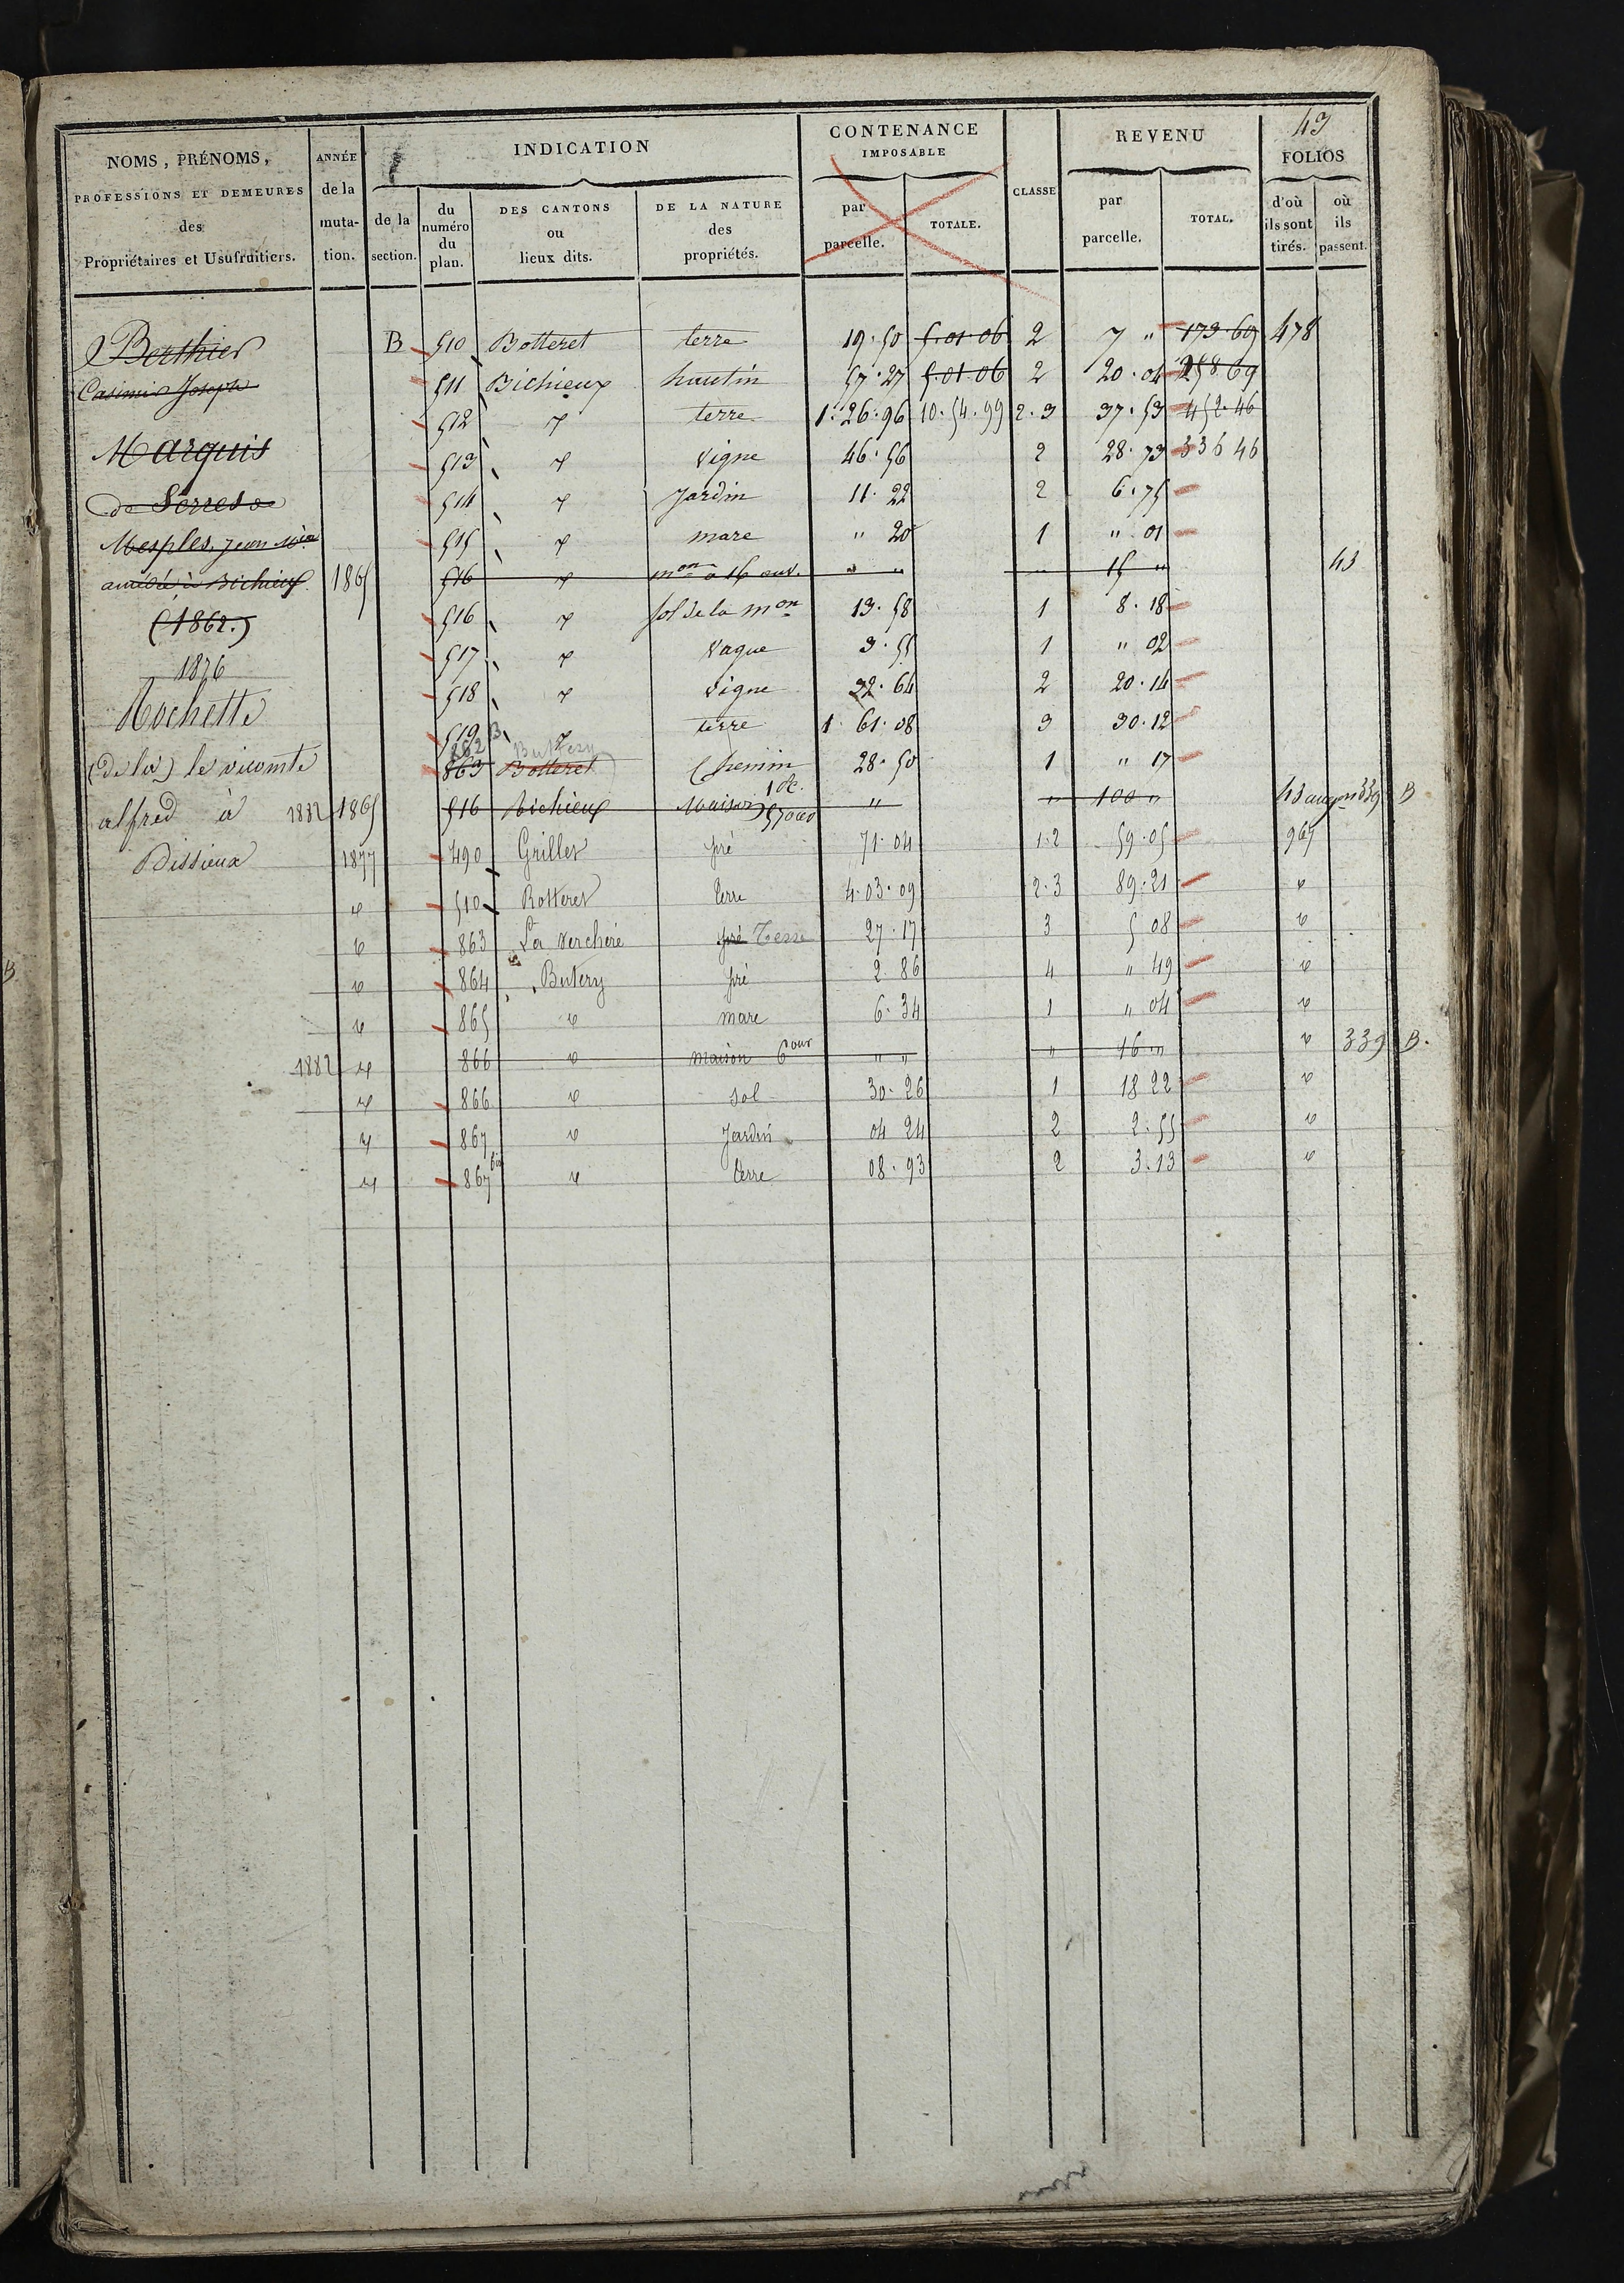 43
NOMS, PRÉNOMS, PROFESSIONS ET DEMEURES des Propriétaires et Usufruitiers.
ANNÉE de la muta-tion.
INDICATION
de la section.
du numéro du plan.
DES CANTONS ou lieux dits.
DE LA NATURE des propriétés.
CONTENANCE IMPOSABLE
par parcelle.
TOTALE.
CLASSE
REVENU
par parcelle.
TOTAL.
FOLIOS
d'où ils sont tirés.
où ils passent.
Berthier
Casimir Joseph
Marquis
de Serres
Mesples, Jean
à Bichieux
(1862.)
1876
Rochette
(de la) le vicomte
alfred à
Bissieux
B 510 Botteret terre 19.50 5.01.06 2 7 " 173.69 478
511 Bichieux hautin 57.27 5.01.06 2 20.04 258 69
512 " terre 1.26.96 10.54.99 2.3 37.53 452.46
513 " Vigne 46.56 2 28.73 336 46
514 " Jardin 11.22 2 6.75
515 " mare " 20 1 " 01
1865 516 " mon à 16 ouv. " " " 15 " 43
516 " sol de la mon 13.58 1 8.18
517 " Vague 3.55 1 " 02
518 " Vigne 32.64 2 20.14
519 " terre 1 61.08 3 30.12
862 B Buttery
863 Botteret Chemin 28.50 1 " 17
1882 1865 516 Bichieux Maison 1 " " 100 " 43 339 B
1877 490 Grillet pré 71.04 1.2 59.05 967
" 510 Botteret terre 4.03.09 2.3 89.21 "
" 863 La Verchere pré Terre 27.17 3 5 08 "
" 864 Butery pré 2.86 4 " 49 "
" 865 " mare 6.34 1 " 04 "
1882 " 866 " maison 6 our " " " 16 " " 339 B.
" 866 " sol 30.26 1 18 22 "
" 867 " Jardin 04 24 2 2.55 "
" 867 bis " terre 08.93 2 3.13 "
B